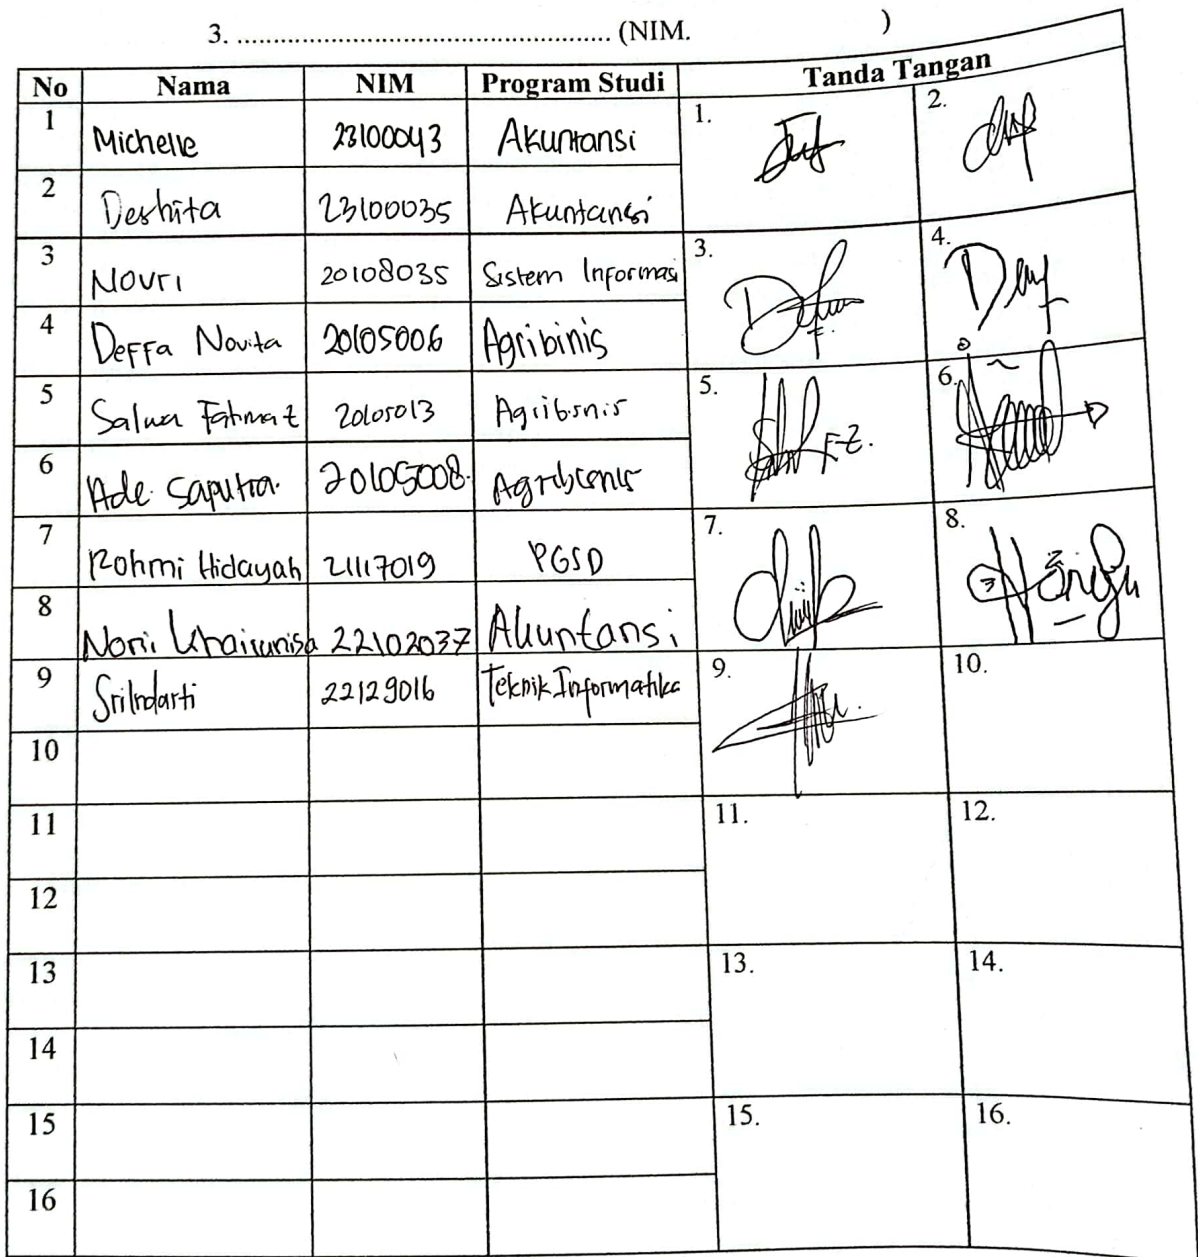 3. .................................................... (NIM. )
No Nama NIM Program Studi Tanda Tangan
1 Michelle 23100043 Akuntansi 1. 2.
2 Deshita 23100035 Akuntansi
3 Novri 20108035 Sistem Informasi 3. 4.
4 Deffa Novita 20105006 Agribinis
5 Salwa Fatimat 20105013 Agribisnis 5. F-Z. 6.
6 Ade Saputra. 20105008.
7 Rohmi Hidayah 21117019 PGSD 7. 8.
8 Norii Khairunisa 22102037 Akuntansi
9 Sri Indarti 22129016 Teknik Informatika 9. 10.
10
11 11. 12.
12
13 13. 14.
14
15 15. 16.
16